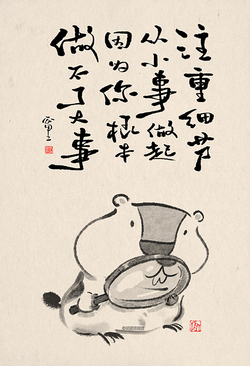 注重细节
从小事做起
因为你根本
做不了大事